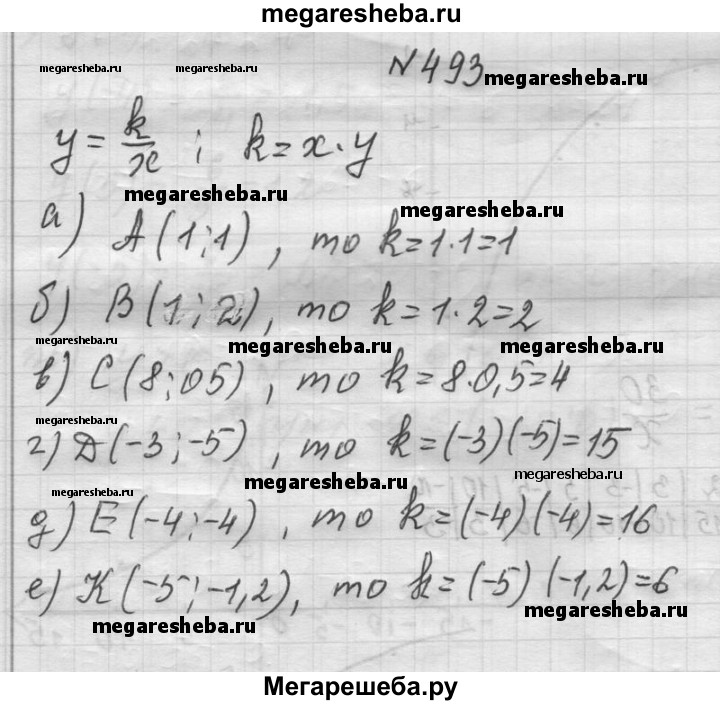 megaresheba.ru
№493
megaresheba.ru megaresheba.ru megaresheba.ru
y = k/x ; k = x · y
megaresheba.ru megaresheba.ru
а) A(1;1), то k=1·1=1
б) B(1;2), то k=1·2=2
megaresheba.ru megaresheba.ru megaresheba.ru
в) C(8;05), то k=8·0,5=4
г) D(-3;-5), то k=(-3)(-5)=15
megaresheba.ru megaresheba.ru
megaresheba.ru
д) E(-4;-4), то k=(-4)(-4)=16
е) K(-5;-1,2), то k=(-5)(-1,2)=6
megaresheba.ru megaresheba.ru
Мегарешеба.ру